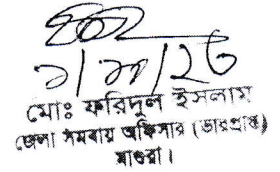 মোঃ ফরিদুল ইসলাম
জেলা সমবায় অফিসার (ভারপ্রাপ্ত)
মাগুরা।